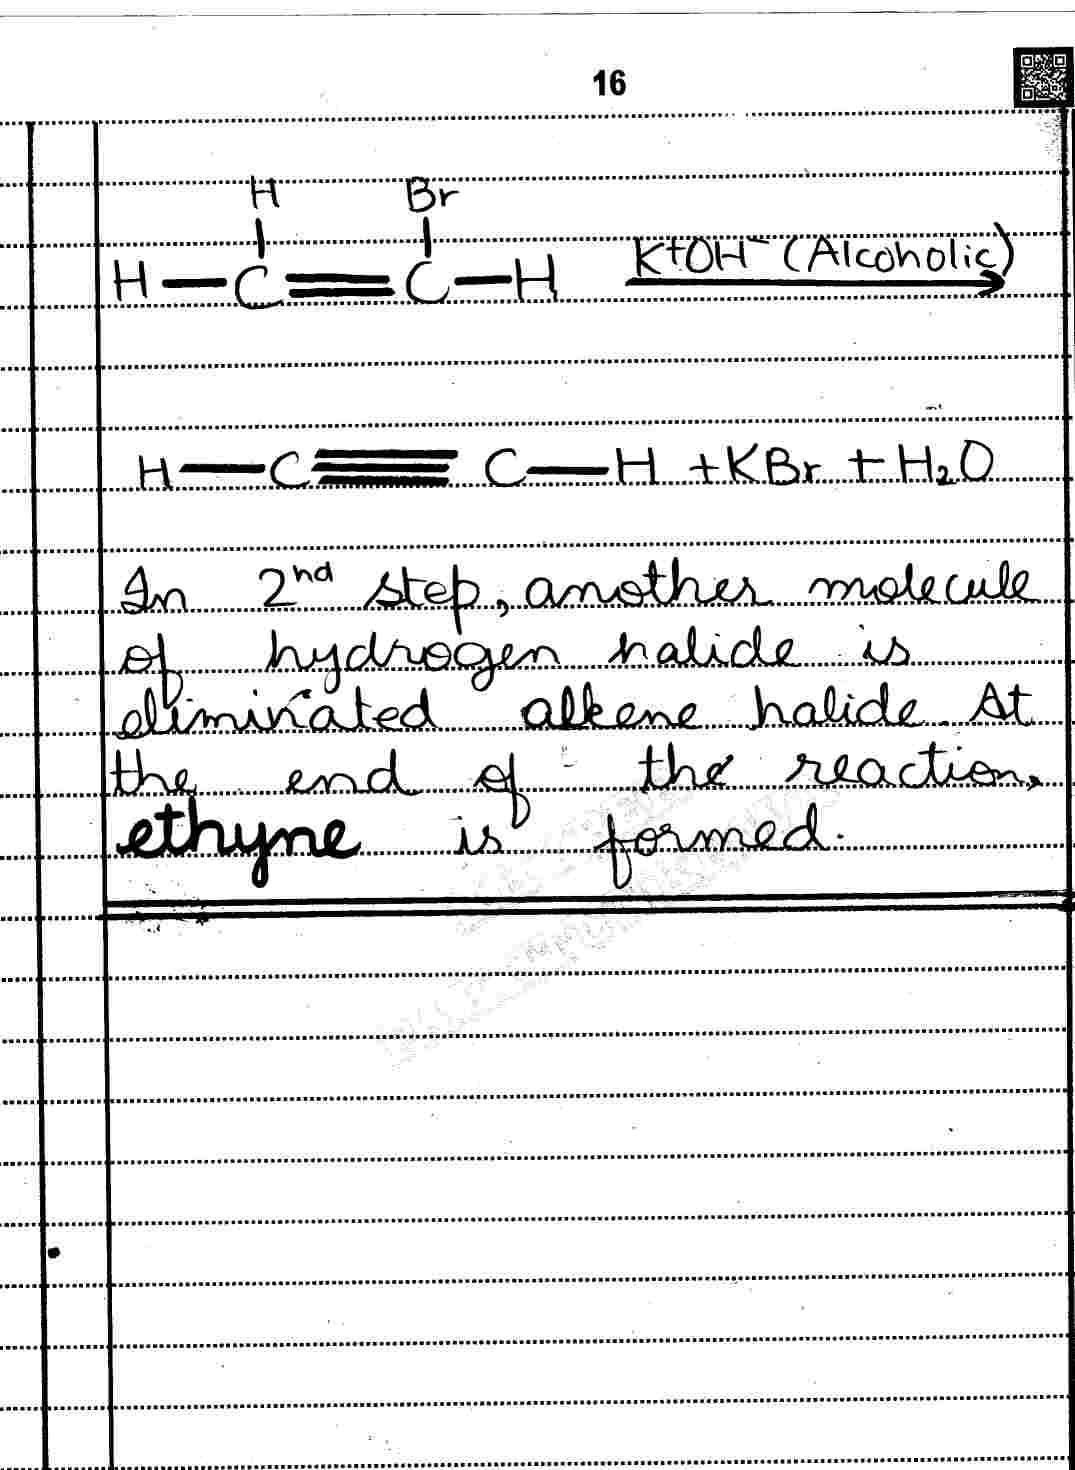 16
H Br
H—C=C—H K+OH- (Alcoholic)
H—C≡C—H +KBr + H₂O
In 2nd step, another molecule
of hydrogen halide is
eliminated alkene halide. At
the end of the reaction,
ethyne is formed.